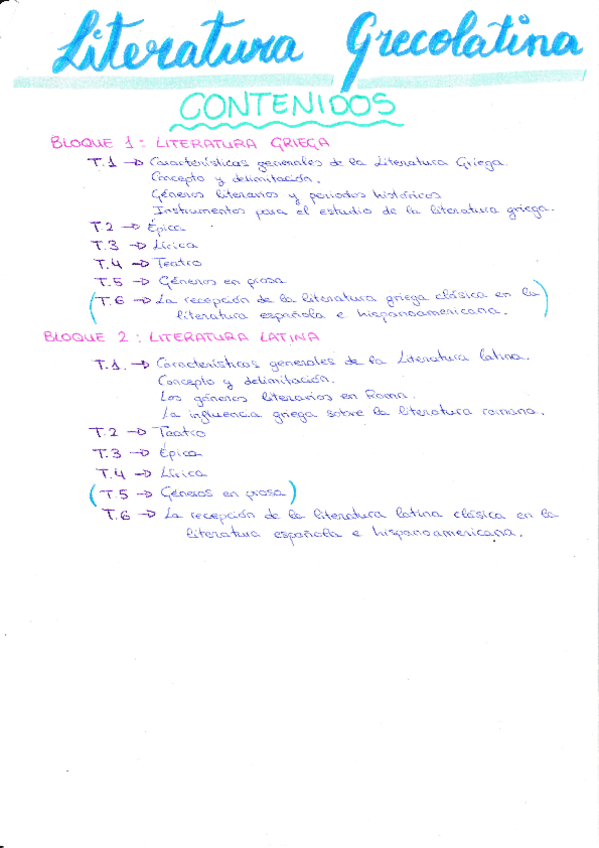 Literatura Grecolatina
CONTENIDOS
BLOQUE 1 : LITERATURA GRIEGA
T.1 → Características generales de la Literatura Griega.
Concepto y delimitación.
Géneros literarios y periodos históricos
Instrumentos para el estudio de la literatura griega.
T.2 → Épica
T.3 → Lírica
T.4 → Teatro
T.5 → Géneros en prosa
(T.6 → La recepción de la literatura griega clásica en la
literatura española e hispanoamericana.)
BLOQUE 2 : LITERATURA LATINA
T.1. → Características generales de la Literatura latina.
Concepto y delimitación.
Los géneros literarios en Roma.
La influencia griega sobre la literatura romana.
T.2 → Teatro
T.3 → Épica
T.4 → Lírica
(T.5 → Géneros en prosa)
T.6 → La recepción de la literatura latina clásica en la
literatura española e hispanoamericana.